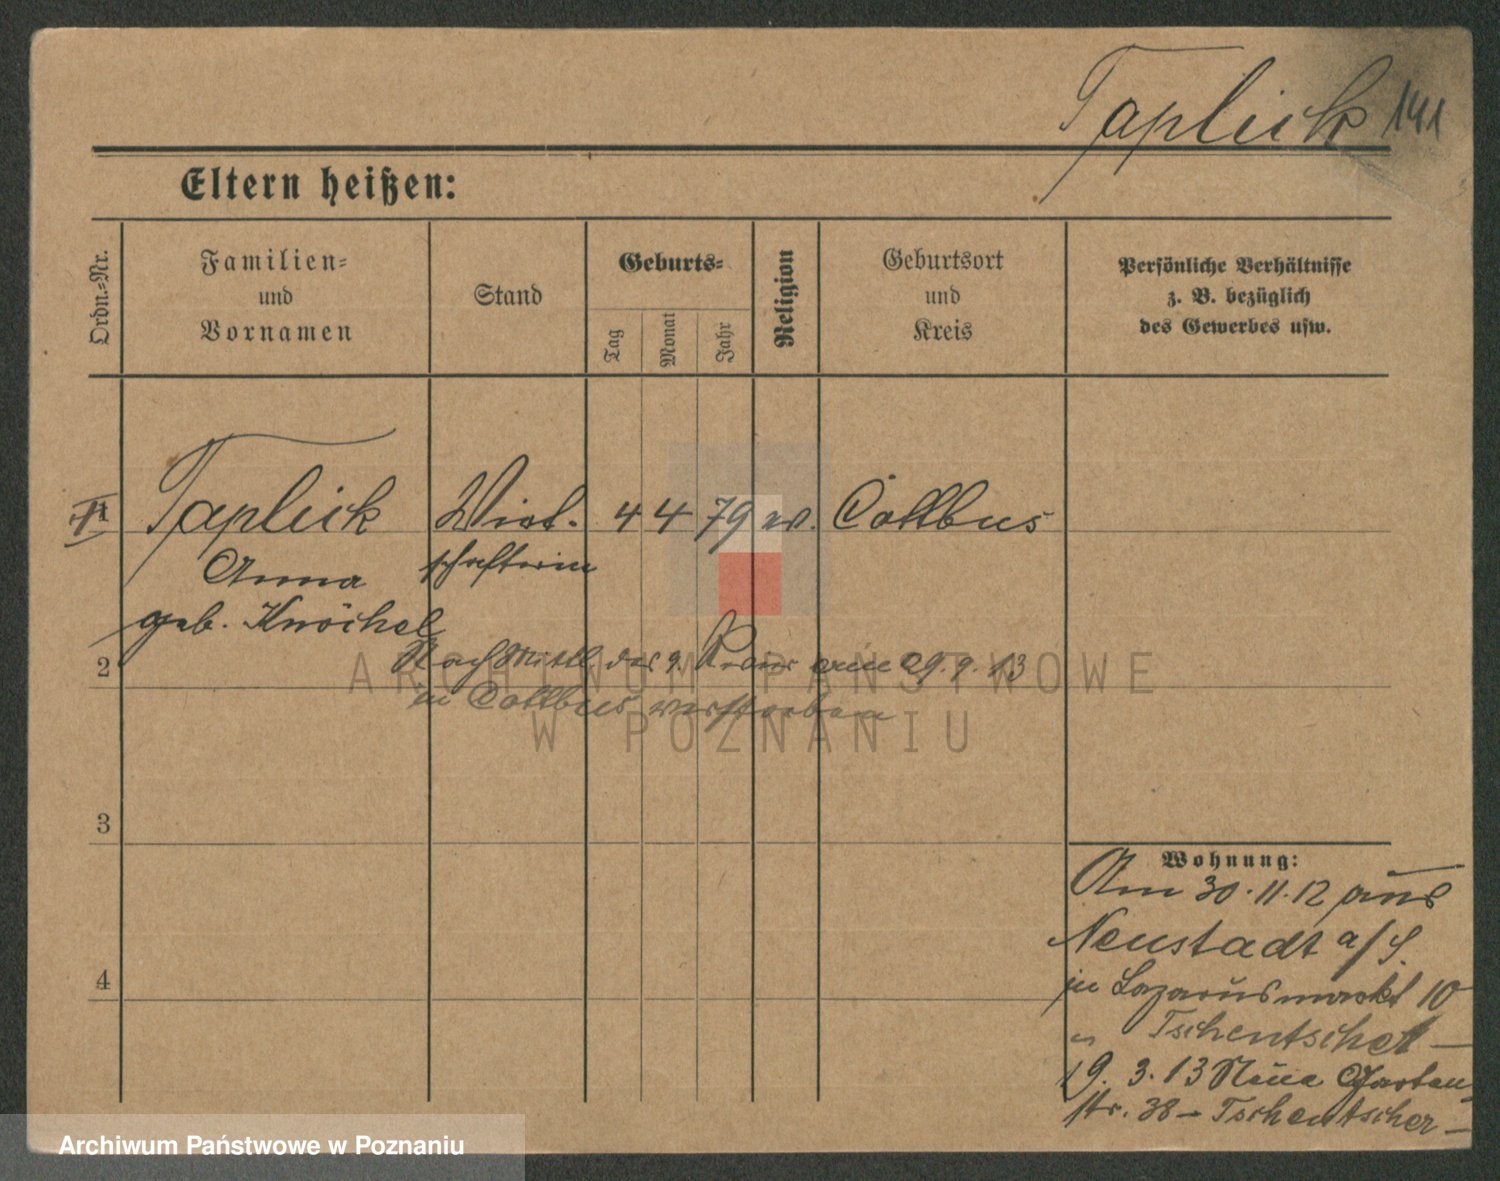 Taplick 141
Eltern heißen:
Ordn.-Nr.
Familien-
und
Vornamen
Stand
Geburts-
Tag
Monat
Jahr
Religion
Geburtsort
und
Kreis
Persönliche Verhältnisse
z. B. bezüglich
des Gewerbes usw.
1 Taplick Wirt- 4 4 79 ev. Cottbus
Anna schafterin
geb. Knöchel
2
Nach Mittl. des 9. Reviers am 29.9.13
in Cottbus verstorben
3
4
Wohnung:
Am 30.11.12 aus
Neustadt a/S.
in Lazarusmarkt 10
Tschentscher —
19. 3. 13 Neue Garten
str. 38 – Tschentscher –
ARCHIWUM PAŃSTWOWE
W POZNANIU
Archiwum Państwowe w Poznaniu